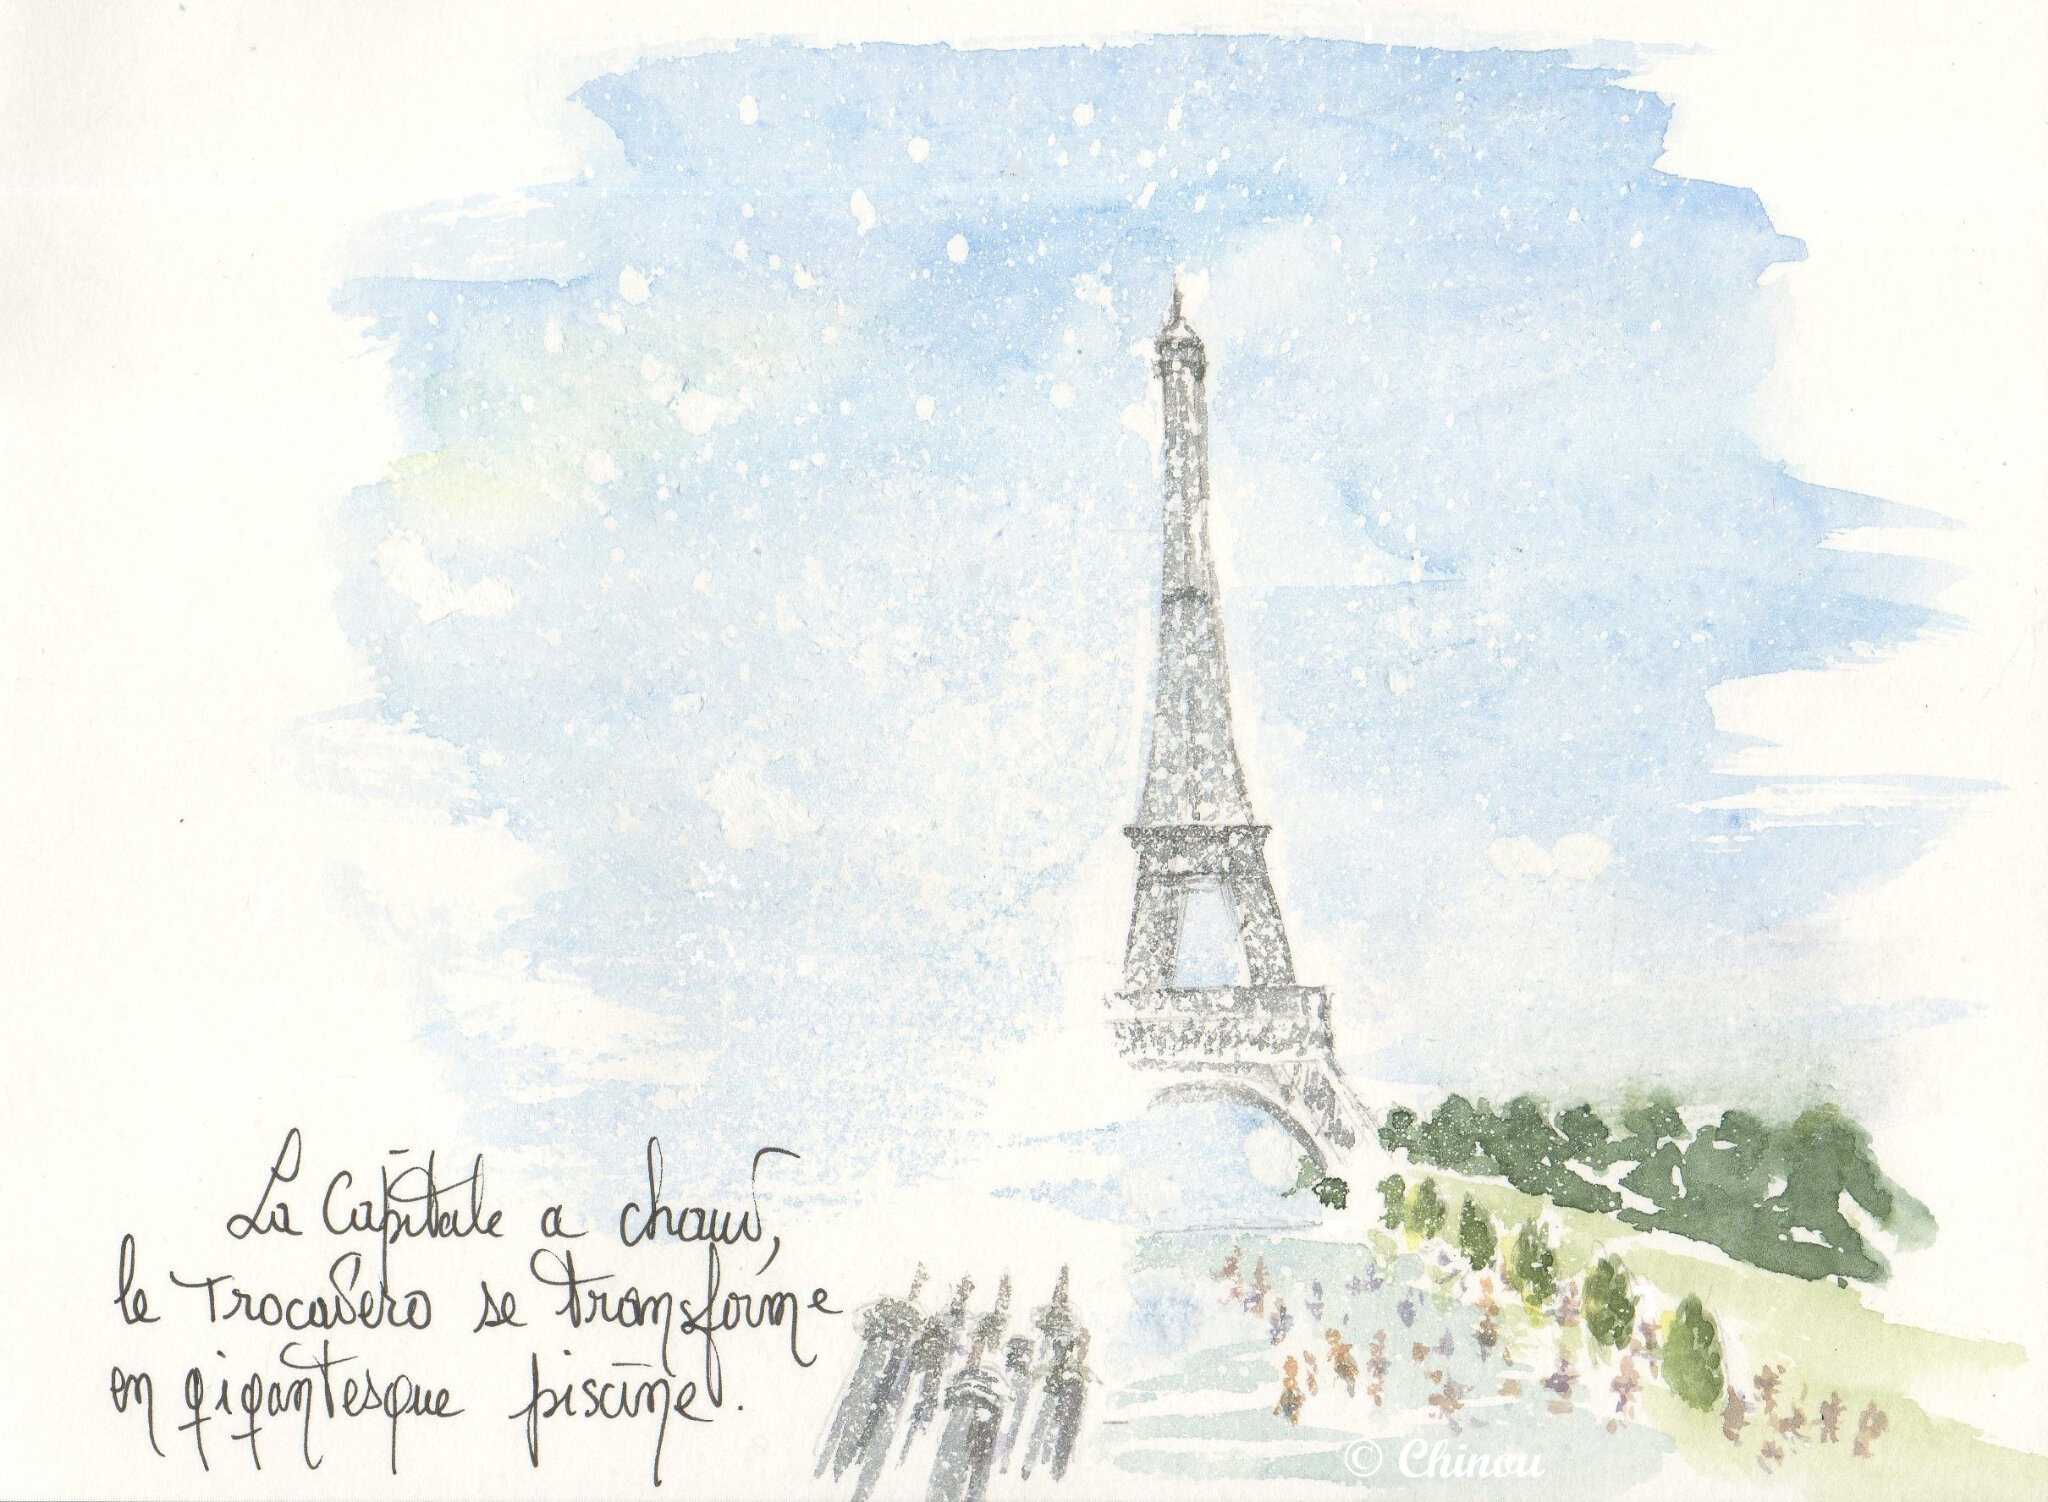 La Capitale a chaud,
le Trocadero se transforme
en gigantesque piscine.
© Chinou